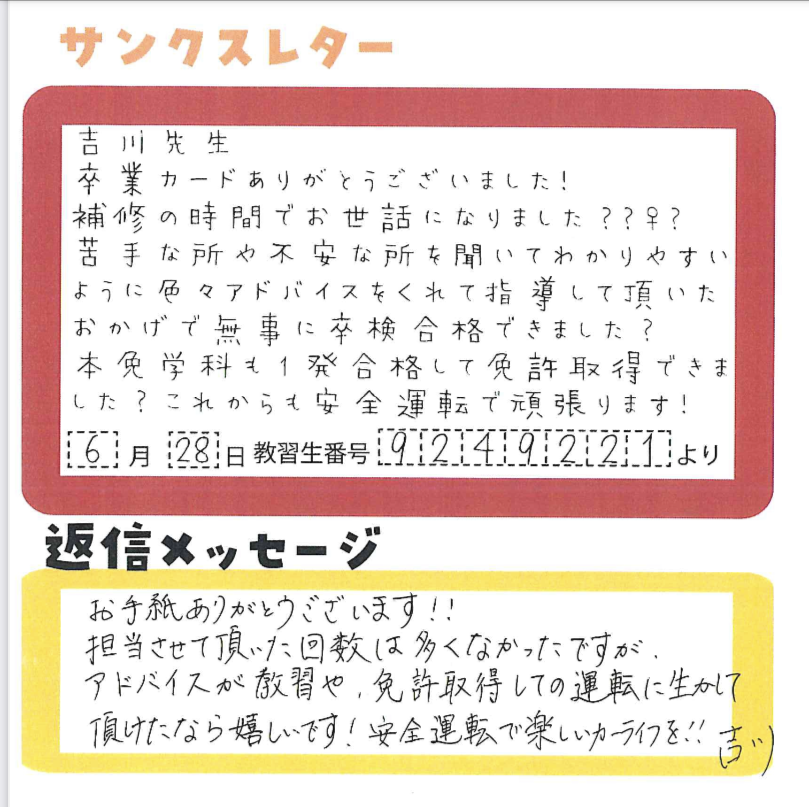 サンクスレター
吉川先生
卒業カードありがとうございました!
補修の時間でお世話になりました??♀?
苦手な所や不安な所を聞いてわかりやすい
ように色々アドバイスをくれて指導して頂いた
おかげで無事に卒検合格できました?
本免学科も1発合格して免許取得できま
した?これからも安全運転で頑張ります!
6月 28日 教習生番号 92499221より
返信メッセージ
お手紙ありがとうございます!!
担当させて頂いた回数は多くなかったですが、
アドバイスが教習や、免許取得しての運転に生かして
頂けたなら嬉しいです!安全運転で楽しいカーライフを!!
吉川